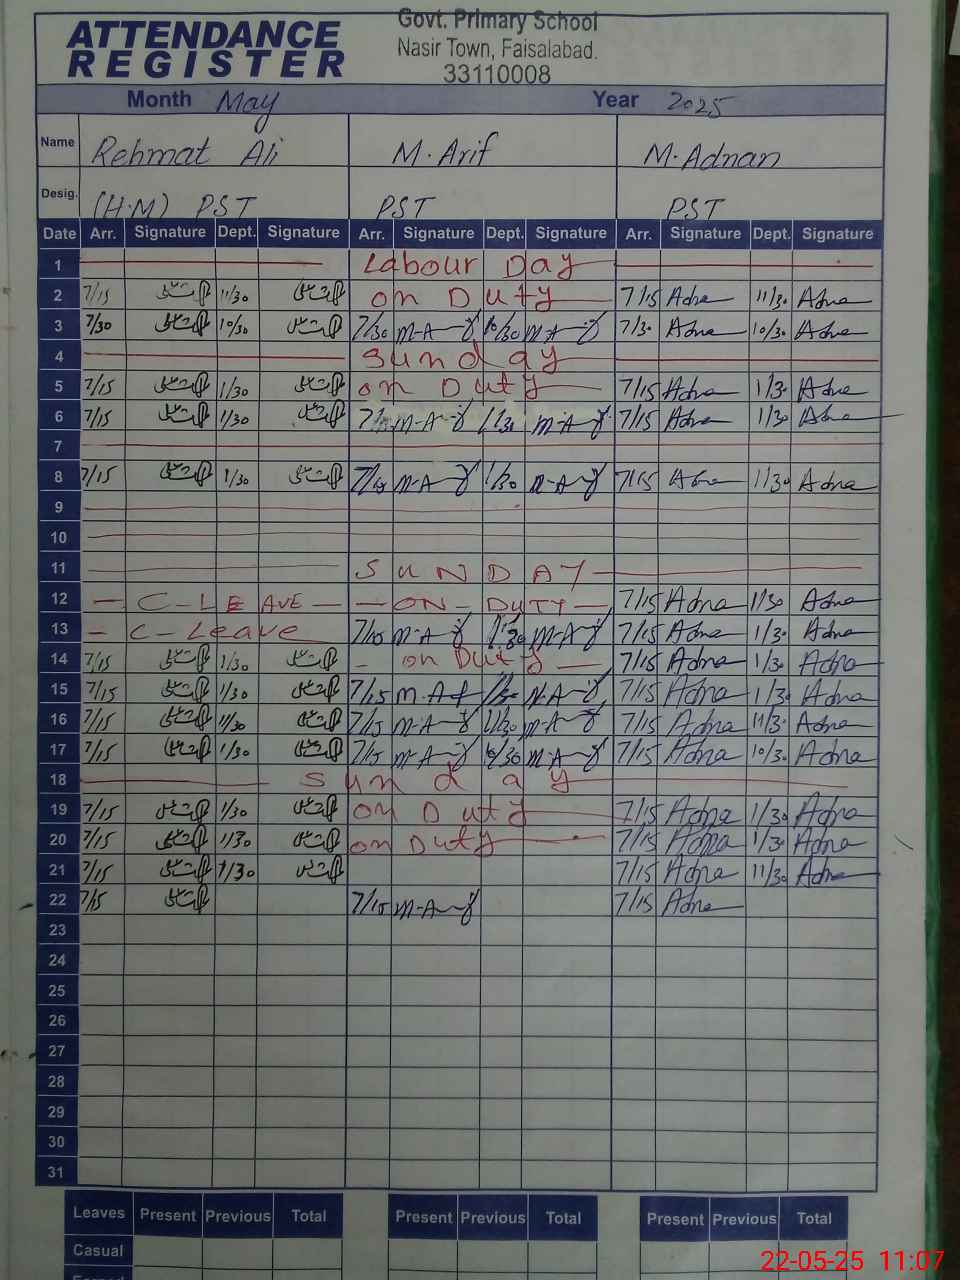 Govt. Primary School
ATTENDANCE
Nasir Town, Faisalabad.
REGISTER
33110008
Month May Year 2025
Name Rehmat Ali M. Arif M. Adnan
Desig. (H.M) PST PST PST
Date Arr. Signature Dept. Signature Arr. Signature Dept. Signature Arr. Signature Dept. Signature
1 Labour Day
2 7/15 11/30 on Duty 7/15 Adna 11/30 Adna
3 7/30 10/30 7/30 M-A 10/30 M-A 7/30 Adna 10/30 Adna
4 Sunday
5 7/15 1/30 on Duty 7/15 Adna 1/30 Adna
6 7/15 1/30 M-A 1/30 M-A 7/15 Adna 1/30 Adna
7
8 7/15 1/30 7/15 M-A 1/30 M-A 7/15 Adna 1/30 Adna
9
10
11 SUNDAY
12 C-LEAVE ON-DUTY 7/15 Adna 11/30 Adna
13 C-Leave 7/15 M-A 1/30 M-A 7/15 Adna 1/30 Adna
14 7/15 1/30 on Duty 7/15 Adna 1/30 Adna
15 7/15 1/30 7/15 M-A M-A 7/15 Adna 1/30 Adna
16 7/15 11/30 7/15 M-A 11/30 M-A 7/15 Adna 11/30 Adna
17 7/15 1/30 7/15 M-A 10/30 M-A 7/15 Adna 10/30 Adna
18 Sunday
19 7/15 1/30 on Duty 7/15 Adna 1/30 Adna
20 7/15 11/30 on Duty 7/15 Adna 1/30 Adna
21 7/15 1/30 7/15 Adna 11/30 Adna
22 7/15 7/15 M-A 7/15 Adna
23
24
25
26
27
28
29
30
31
Leaves Present Previous Total Present Previous Total Present Previous Total
Casual
22-05-25 11:07